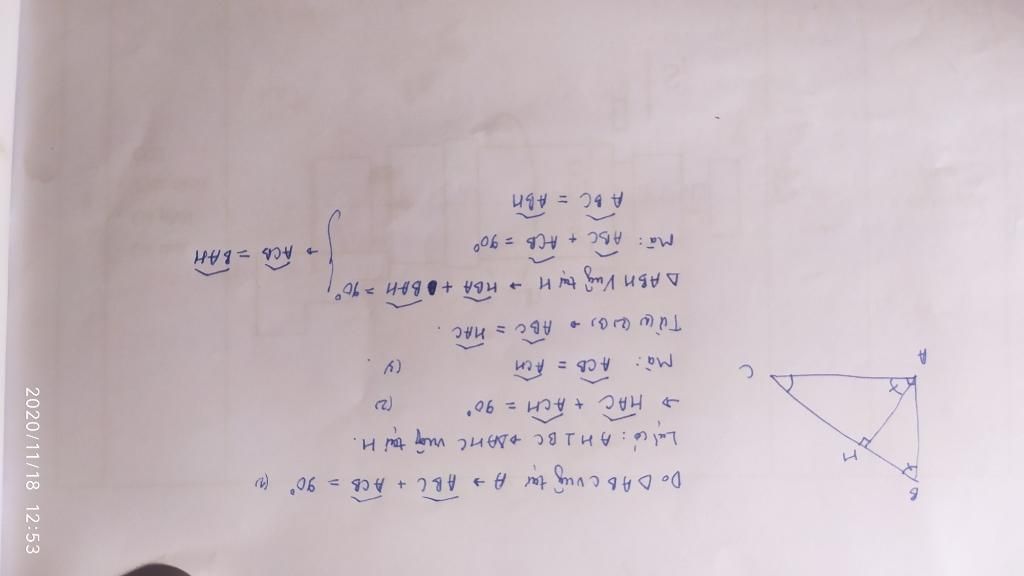 B
H
A
C
Do ΔABC vug̃ tại A → ABC + ACB = 90° (1)
Lại có: AH ⊥ BC → ΔAHC vug̃ tại H.
→ HAC + ACH = 90° (2)
Mà: ACB = ACH (3)
Từ → ABC = HAC.
ΔABH Vug̃ tại H → HBA + BAH = 90°
Mà: ABC + ACB = 90°
ABC = ABH
→ ACB = BAH
2020/11/18 12:53